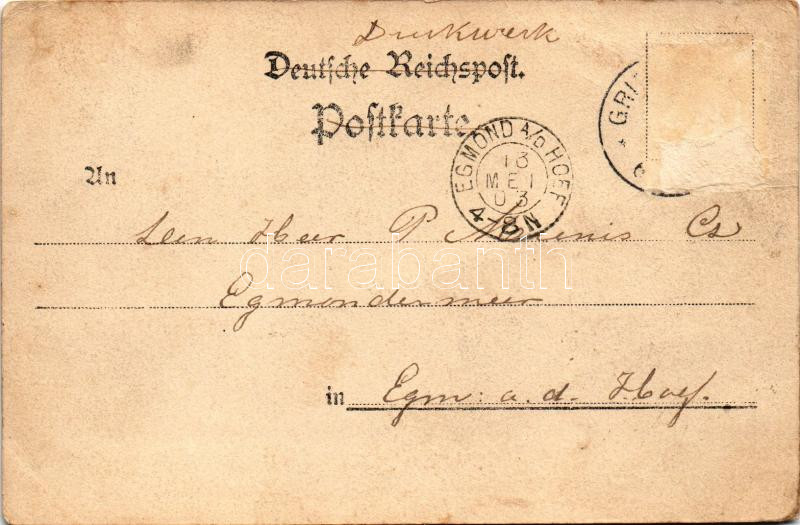 Drukwerk
Deutsche Reichspost.
Postkarte
EGMOND A/D HOEF
13
MEI
03
4-8N
GRI
An
den Heer P Cs
Egmondermeer
in Egm: a. d. Hoef.
darabanth